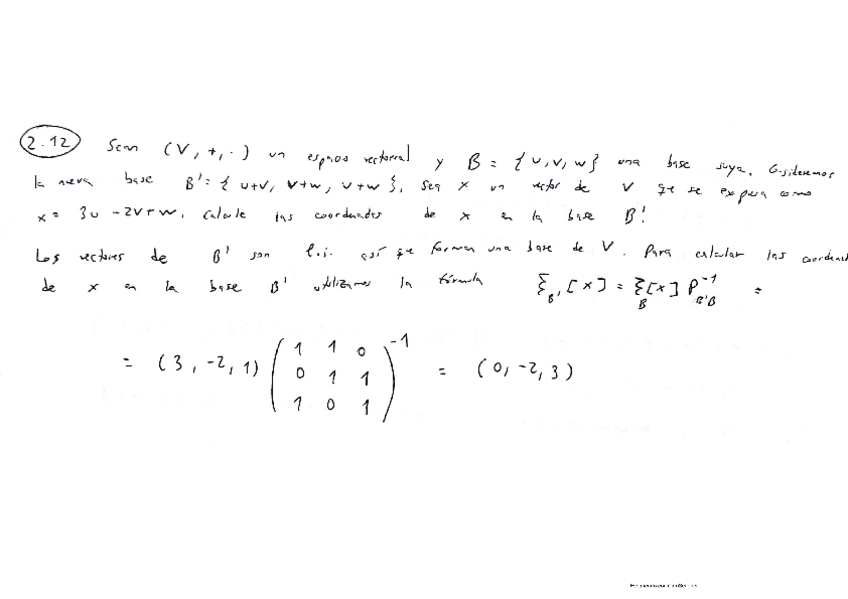 2.12 Sean (V, +, ·) un espacio vectorial y B = {u, v, w} una base suya. Consideremos
la nueva base B' = {u+v, v+w, u+w}. Sea x un vector de V que se expresa como
x = 3u - 2v + w. Calcule las coordenadas de x en la base B'.
Los vectores de B' son l.i. así que forman una base de V. Para calcular las coordenad
de x en la base B' utilizamos la fórmula ξ_B' [x] = ξ_B [x] P⁻¹_B'B =
= (3, -2, 1) ( 1 1 0 )⁻¹ = (0, -2, 3)
0 1 1
1 0 1